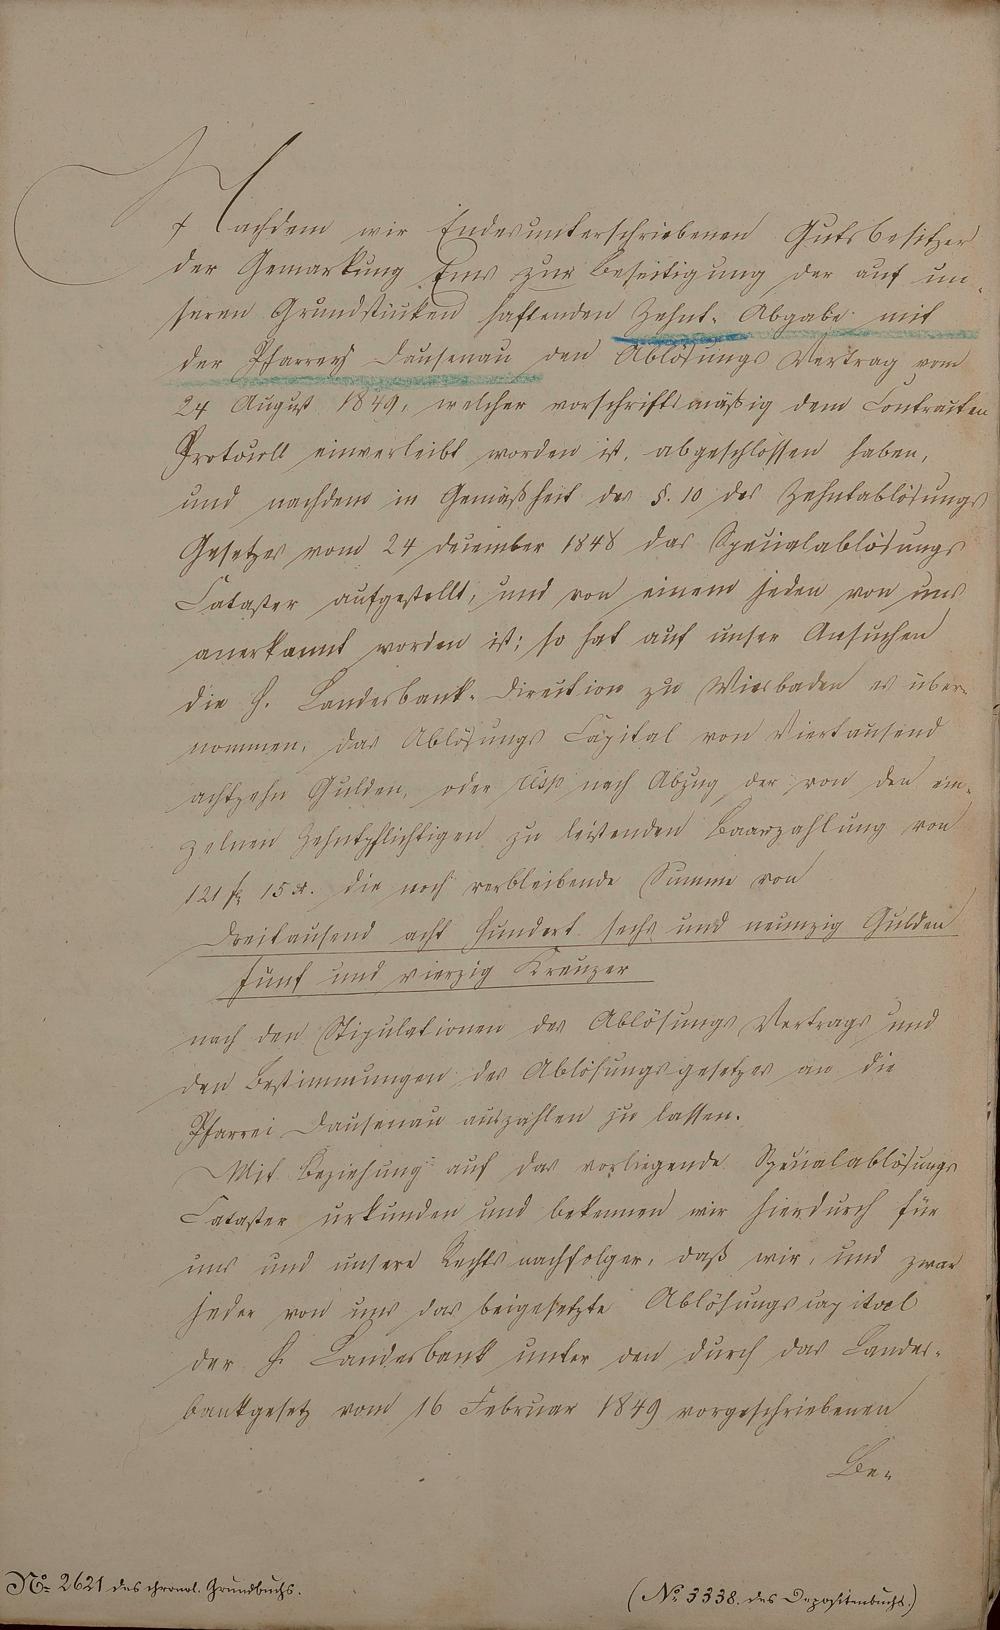 Nachdem wir Endesunterschriebenen Gutsbesitzer
der Gemarkung Ems zur Beseitigung der auf un-
seren Grundstücken haftenden Zehnt-Abgabe mit
der Pfarrey Dausenau den Ablösungs Vertrag vom
24 August 1849, welcher vorschriftsmäßig dem Contracten
Protocoll einverleibt worden ist, abgeschlossen haben,
und nachdem in Gemäßheit des §. 10 des Zehntablösungs
Gesetzes vom 24 December 1848 das Specialablösungs
Cataster aufgestellt, und von einem jeden von uns
anerkannt worden ist; so hat auf unser Ansuchen
die H. Landesbank-Direction zu Wiesbaden es über-
nommen, das Ablösungs Capital von Viertausend
achtzehn Gulden, oder resp nach Abzug der von den ein-
zelnen Zehntpflichtigen zu leistenden Baarzahlung von
121 f 15 x. die noch verbleibende Summe von
Dreitausend acht Hundert sechs und neunzig Gulden
fünf und vierzig Kreuzer
nach den Stipulationen des Ablösungs Vertrags und
den Bestimmungen des Ablösungsgesetzes an die
Pfarrei Dausenau auszahlen zu lassen.
Mit Beziehung auf das vorliegende Specialablösungs
Cataster urkunden und bekennen wir hierdurch für
uns und unsere Rechtsnachfolger, daß wir, und zwar
jeder von uns das beigesetzte Ablösungscapital
der H. Landesbank unter den durch das Landes-
bankgesetz vom 16 Februar 1849 vorgeschriebenen
Be-
No. 2621 des chronol. Grundbuchs.
(No. 3338. des Depositenbuchs.)